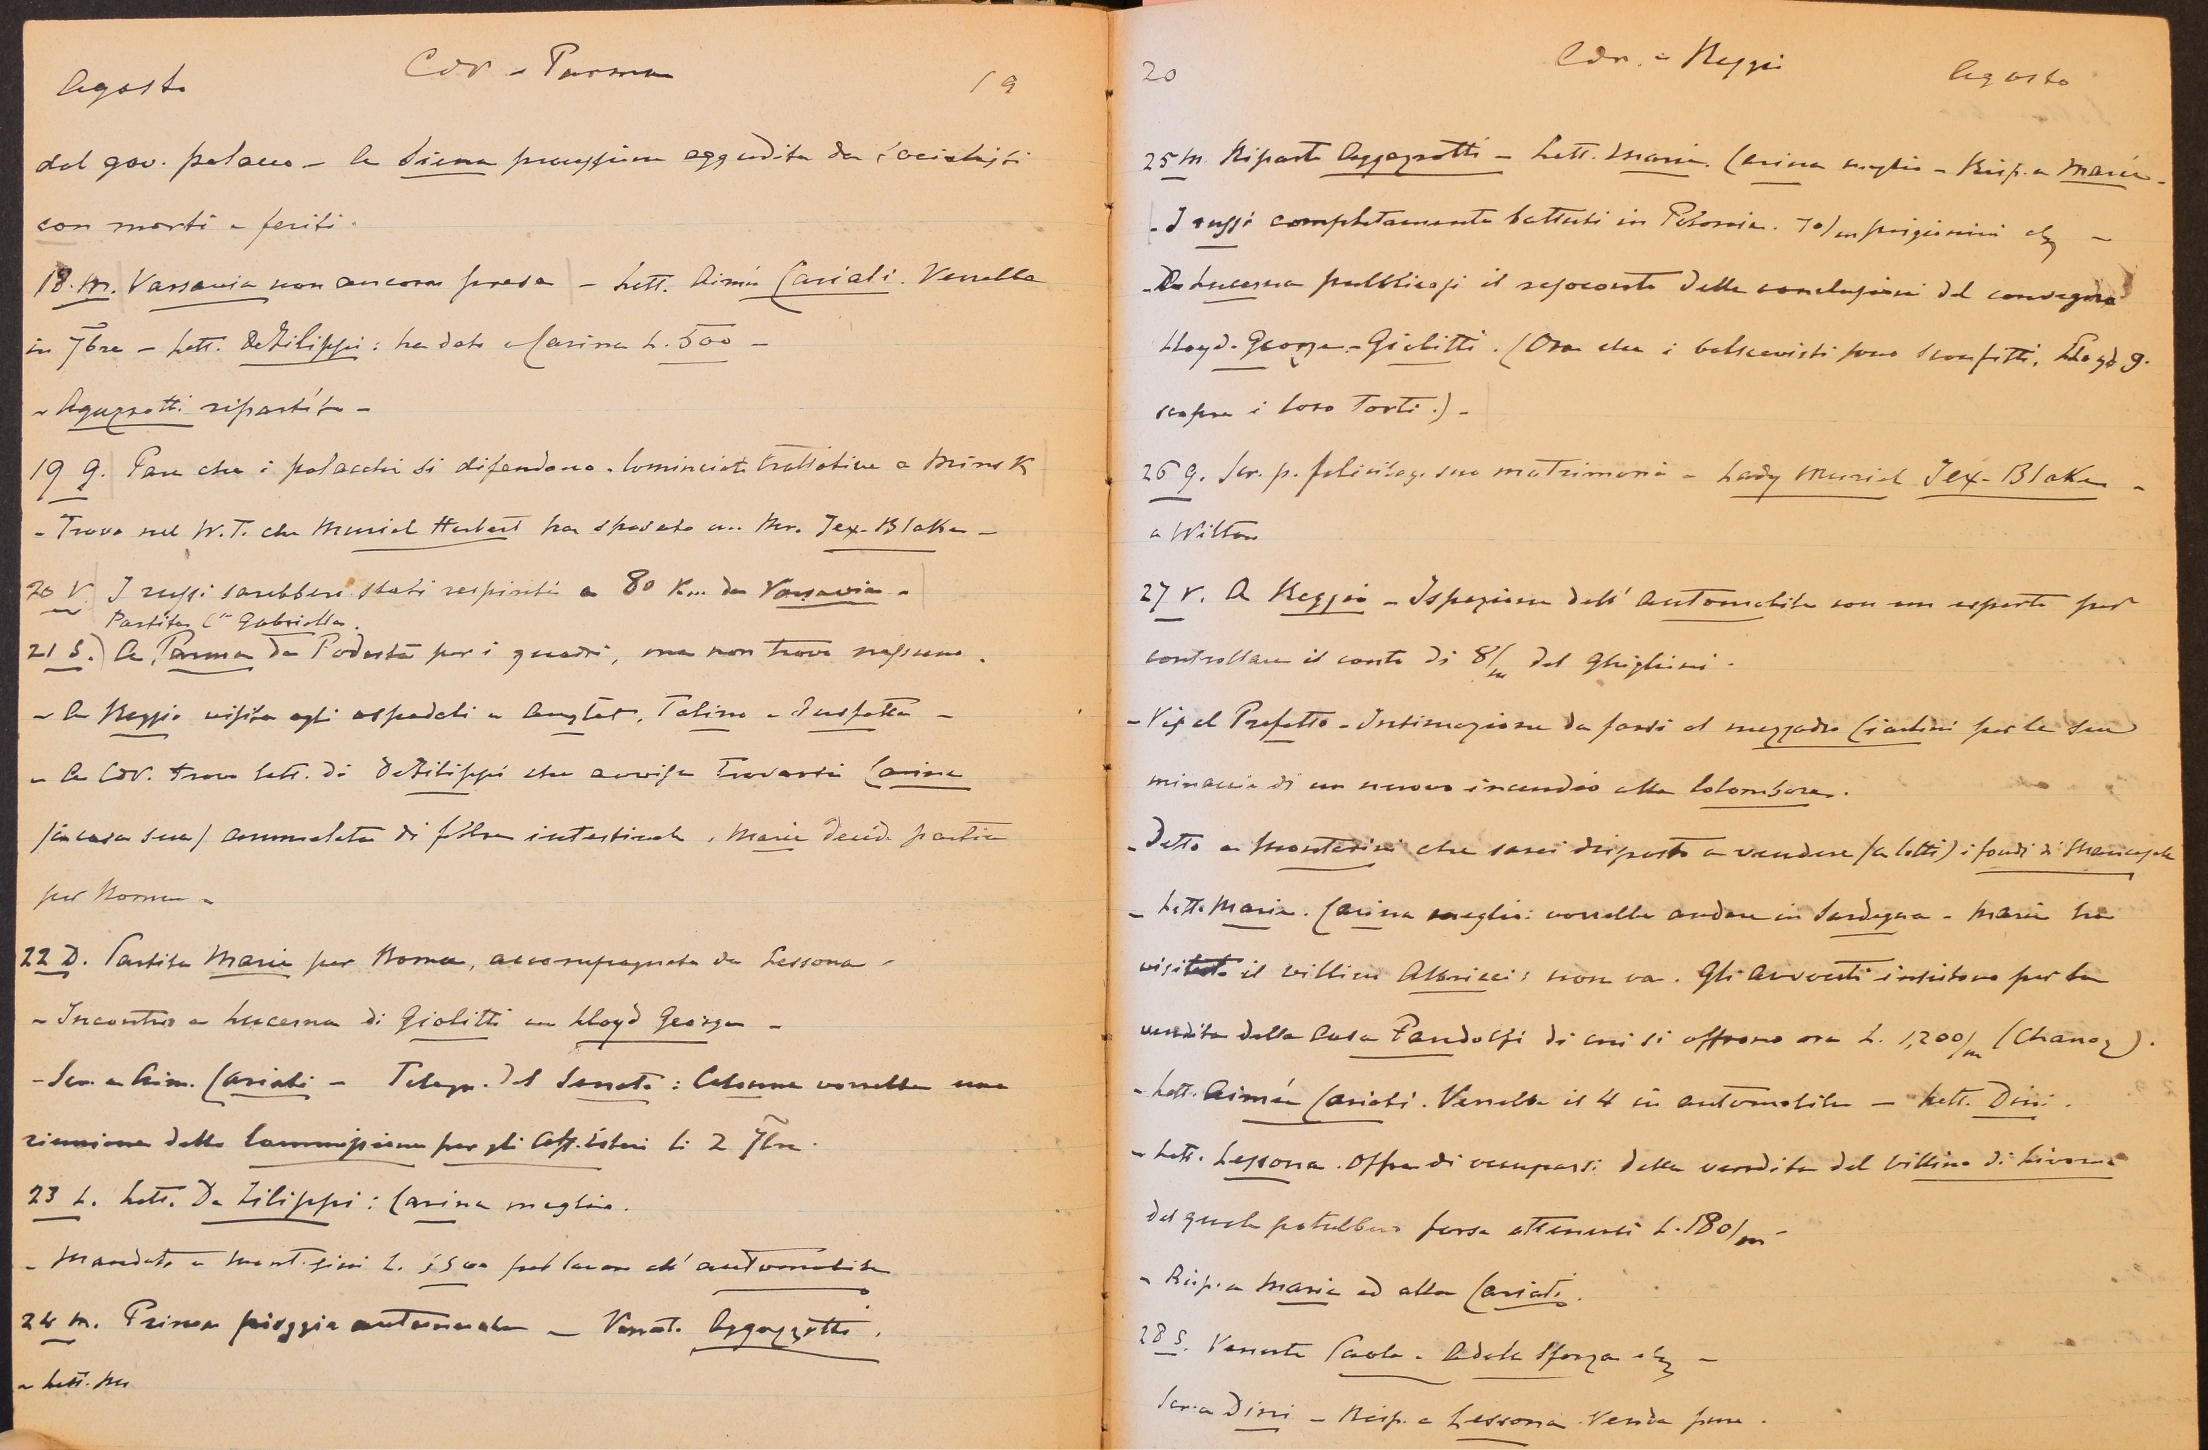 Agosto
CdV - Parma
19
del gov. polacco - A Siena processione aggredita da socialisti
con morti e feriti.
18. M. Varsavia non ancora presa - Lett. Aimée Cariati. Verrebbe
in 7bre - Lett. DeFilippi: ha dato a Carina L. 500 -
- Agazzotti ripartito -
19 G. Pare che i polacchi si difendano. Cominciate trattative a Minsk
- Trovo nel W.T. che Muriel Herbert ha sposato un Mr. Jex-Blake -
20 V. I russi sarebbero stati respinti a 80 K... da Varsavia -
Partita C.sa Gabriella.
21 S.) A Parma da Podestà per i quadri, ma non trovo nessuno.
- A Reggio visita agli ospedali e Talino e
- A CdV. trovo lett. di DeFilippi che avvisa trovarsi Carina
(in casa sua) ammalata di febbre intestinale, Maria decide partire
per Roma -
22 D. Partita Maria per Roma, accompagnata da Lessona -
- Incontro a Lucerna di Giolitti con Lloyd George -
- Scr. a Aim. Cariati - Telegr. del Senato: Colonna vorrebbe una
riunione della Commissione per gli Aff. Esteri li 2 7bre.
23 L. Lett. De Filippi: Carina meglio.
- Mandato a L. pel lavoro all' automobile
24 M. Prima pioggia autunnale - Venuto Aggazzotti.
- Lett. Mr
20
CdV. - Reggio
Agosto
25 M. Riparte Aggazzotti - Lett. Maria. Carina meglio - Risp. a Maria -
- I russi completamente battuti in Polonia. 70/m prigionieri etc -
- Da Lucerna pubblicasi il resoconto delle conclusioni del convegno
Lloyd-George-Giolitti. (Ora che i bolscevisti sono sconfitti, Lloyd G.
scopre i loro torti.) -
26 G. Scr. p. felicitaz. suo matrimonio - Lady Muriel Jex-Blake -
a Wilton
27 V. A Reggio - Ispezione dell' automobile con un esperto per
controllare il conto di 8/m del Ghighini.
- Vis. al Prefetto - Intimazione da farsi al mezzadro Ciarlini per le sue
minaccie di un nuovo incendio alla Colombara.
- Detto a Montesini che sarei disposto a vendere (a lotti) i fondi di Mancasale
- Lett. Maria. Carina meglio: vorrebbe andare in Sardegna - Maria ha
visitato il villino Albricci: non va. Gli avvocati insistono per la
vendita della Casa Pandolfi di cui si offrono ora L. 1,200/m (Chanoz).
- Lett. Aimée Cariati. Verrebbe il 4 in automobile - Lett. Dini.
- Lett. Lessona. Offre di occuparsi della vendita del Villino di Livorno
del quale potrebbero forse ottenersi L. 180/m -
- Risp. a Maria ed alla Cariati.
28 S. Venute Paola e Adele Sforza etc -
Scr. a Dini - Risp. a Lessona. Venda pure.